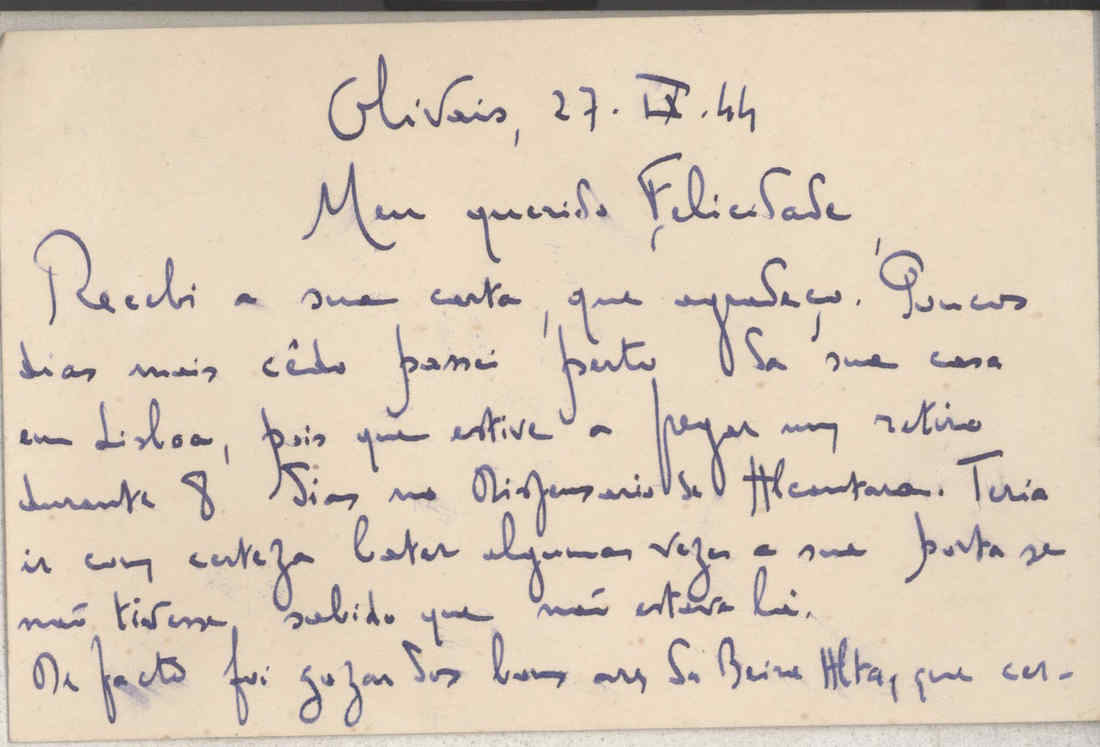 Olivais, 27. IX. 44
Meu querido Felicidade,
Recebi a sua carta, que agradeço. Poucos
dias mais cêdo passei perto da sua casa
em Lisboa, pois que estive a pregar um retiro
durante 8 dias no Dispensario de Alcantara. Teria
ir com certeza bater algumas vezes a sua porta se
não tivesse sabido que não estava lá.
De facto foi gozar dos bons ares da Beira Alta, que cer-